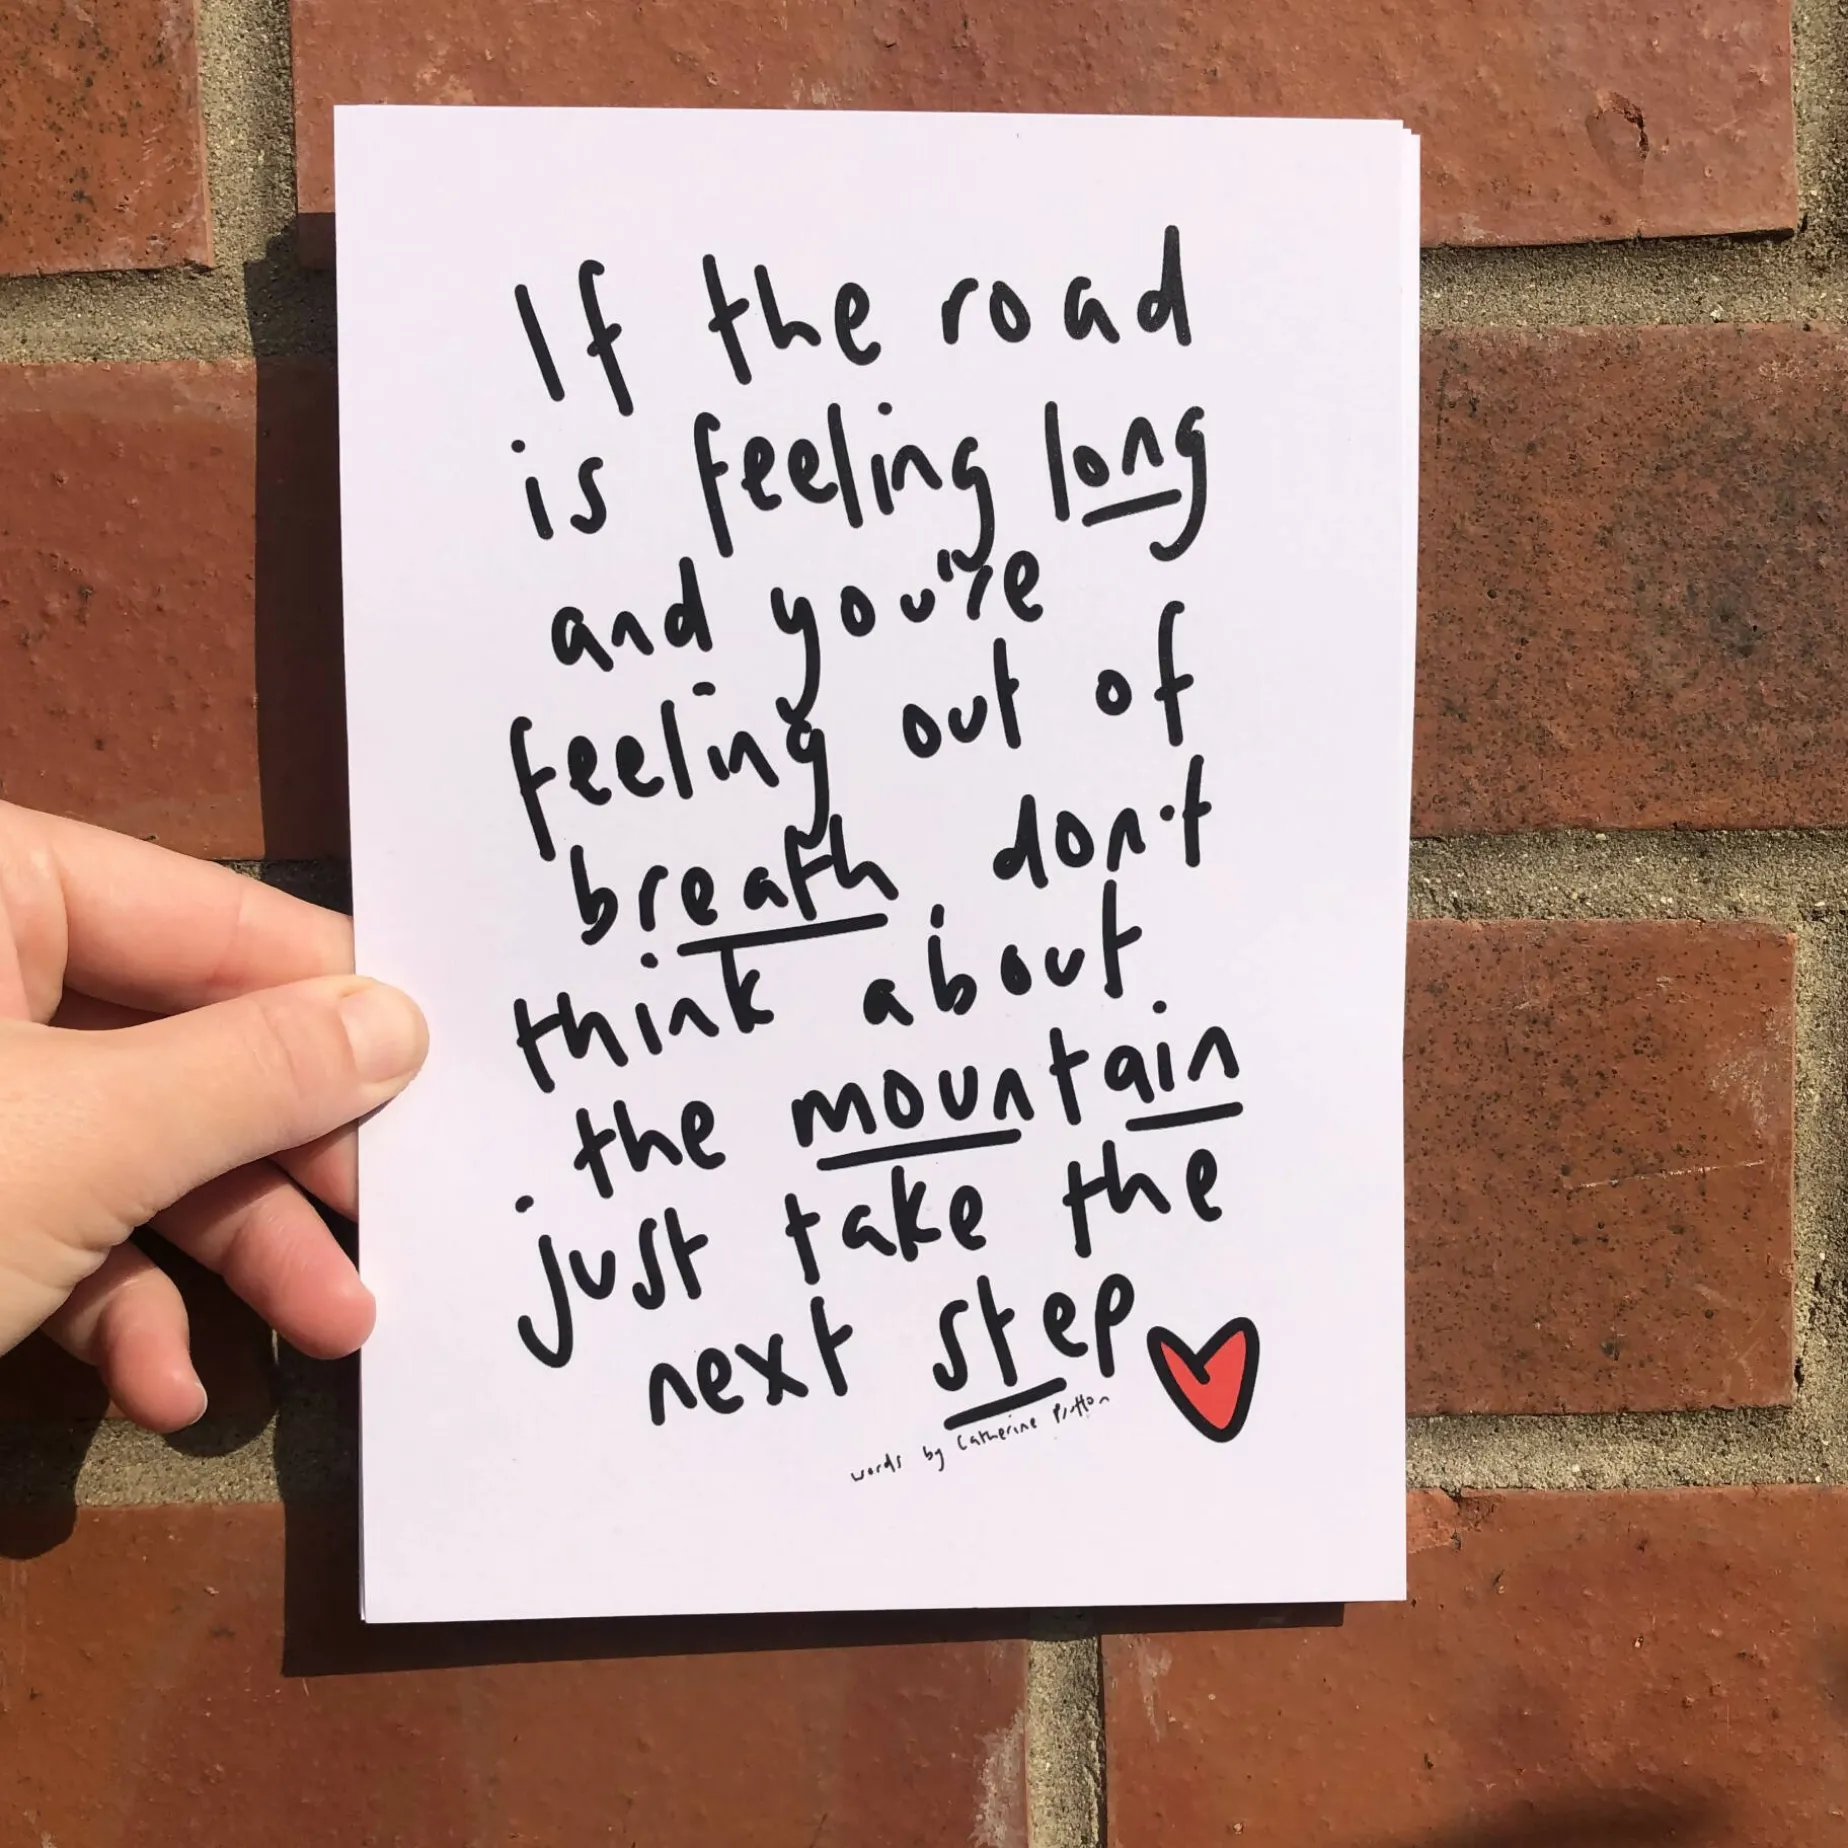 If the road
is feeling long
and you're
feeling out of
breath don't
think about
the mountain
just take the
next step
words by Catherine Prutton